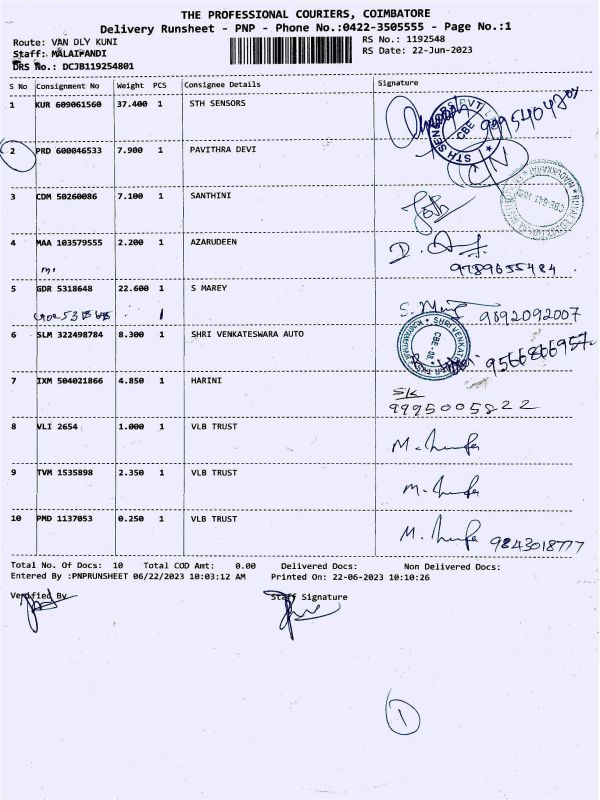 THE PROFESSIONAL COURIERS, COIMBATORE
Delivery Runsheet - PNP - Phone No.:0422-3505555 - Page No.:1
Route: VAN DLY KUNI
RS No.: 1192548
Staff: MALAIPANDI
RS Date: 22-Jun-2023
DRS No.: DCJB119254801
S No Consignment No Weight PCS Consignee Details Signature
1 KUR 609061560 37.400 1 STH SENSORS
2 PRD 600046533 7.900 1 PAVITHRA DEVI
3 CDM 50260086 7.100 1 SANTHINI
4 MAA 103579555 2.200 1 AZARUDEEN
9789655484.
5 GDR 5318648 22.600 1 S MAREY
9892092007
6 SLM 322498784 8.300 1 SHRI VENKATESWARA AUTO
9566866957
7 IXM 504021866 4.850 1 HARINI
9995005822
8 VLI 2654 1.000 1 VLB TRUST
9 TVM 1535898 2.350 1 VLB TRUST
10 PMD 1137053 0.250 1 VLB TRUST
9843018777
Total No. Of Docs: 10 Total COD Amt: 0.00 Delivered Docs: Non Delivered Docs:
Entered By :PNPRUNSHEET 06/22/2023 10:03:12 AM Printed On: 22-06-2023 10:10:26
Verified By Staff Signature
1